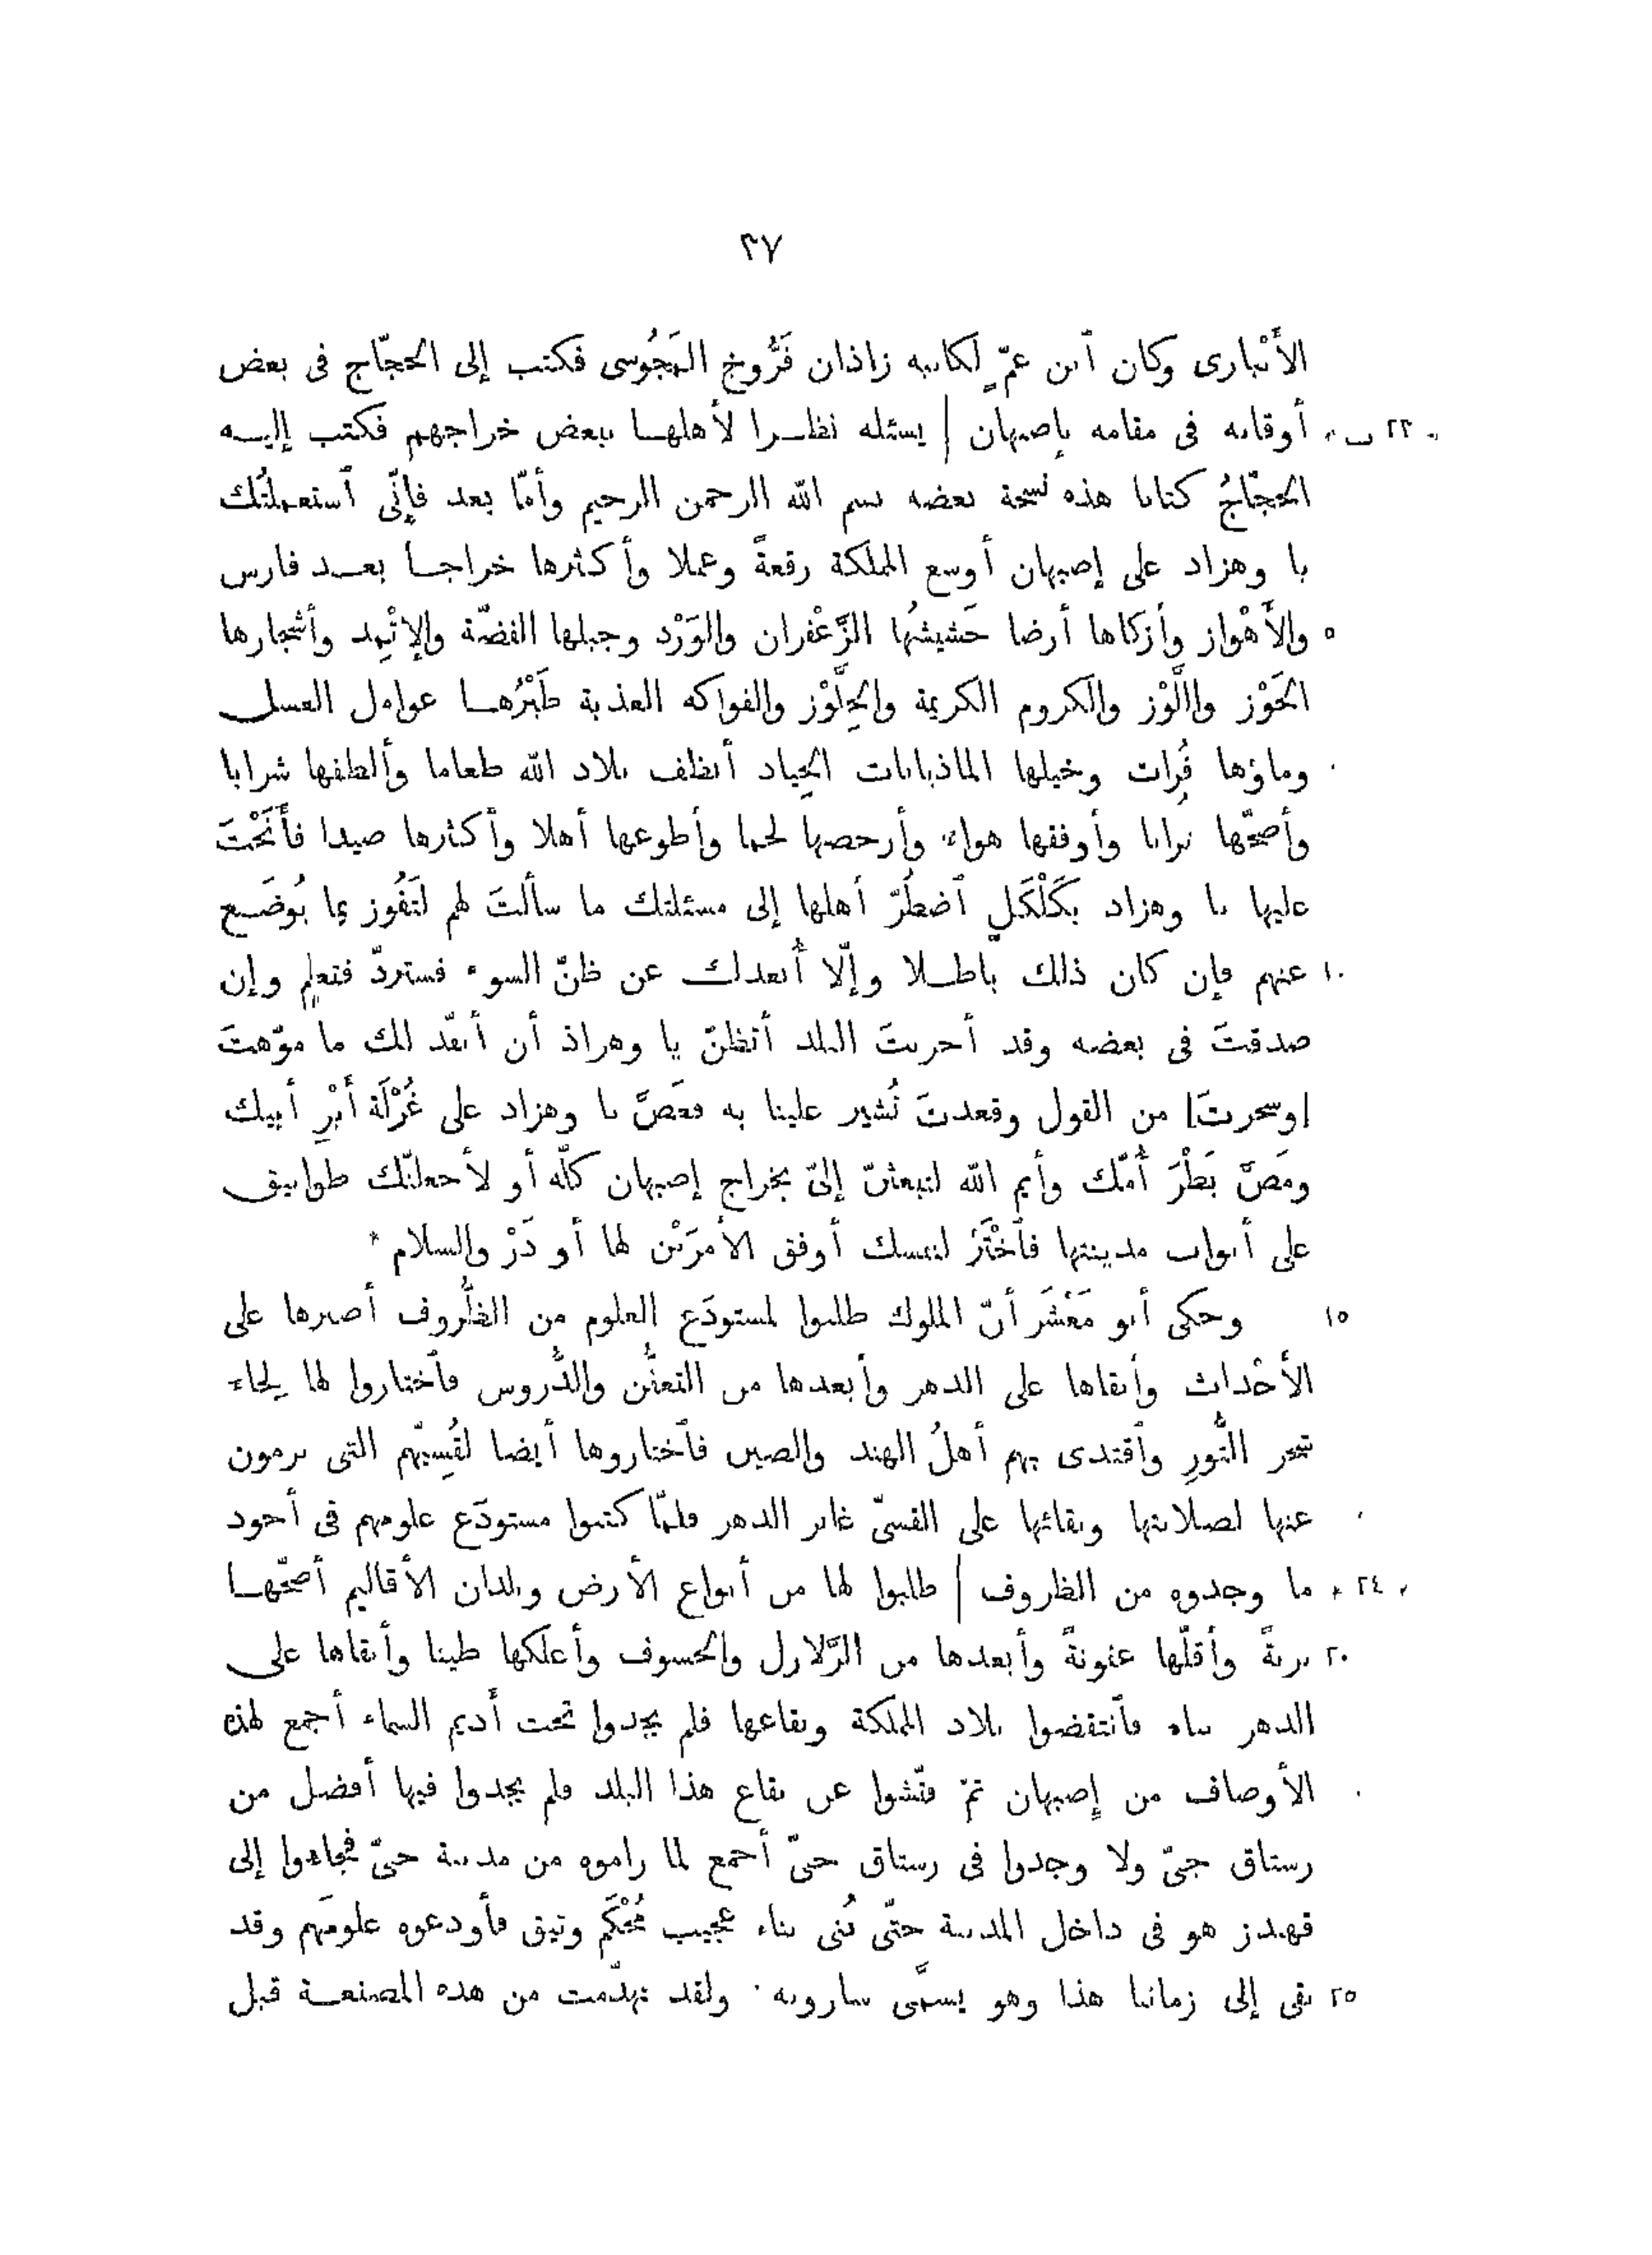 ٣٧
الأَنْبارى وكان ٱبن عمّ لكاتبه زاذان فَرُّوخ المَجُوسى فكتب إلى الحجّاج فى بعض
٢٣ ب أوقاته فى مقامه بإصبهان | يسئله نظرا لأهلها ببعض خراجهم فكتب إليه
الحجّاجُ كتابا هذه نسخة بعضه بسم الله الرحمن الرحيم وأمّا بعد فإنّى ٱستعملتُك
يا وهزاد على إصبهان أوسع المملكة رقعةً وعملا وأكثرها خراجا بعد فارس
٥ والأَهْواز وأزكاها أرضا حَشيشُها الزَّعْفران والوَرْد وجبلها الفضّة والإثْمِد وأشجارها
الجَوْز واللَّوْز والكروم الكريمة والجِلَّوْز والفواكه العذبة طَيْرُها عوامل العسل
وماؤها فُرات وخيلها الماذيانات الجِياد أنظف بلاد الله طعاما وألطفها شرابا
وأصحّها ترابا وأوفقها هواء وأرخصها لحما وأطوعها أهلا وأكثرها صيدا فأَنَخْتَ
عليها يا وهزاد بكَلْكَلٍ ٱضطَرّ أهلها إلى مسئلتك ما سألتَ لهم لتَفُوز بما يُوضَع
١٠ عنهم فإن كان ذلك باطلا وإلّا أُبعدك عن ظنّ السوء فستردّ فتعلم وإن
صدقتَ فى بعضه وقد أخربتَ البلد أتظنّ يا وهراذ أن أنفّذ لك ما موّهتَ
[وسحرتَ] من القول وقعدتَ تُشير علينا به فعَضَّ يا وهزاد على غُرْلَة أَيْرِ أبيك
ومَصَّ بَظْرَ أُمّك وأيم الله لتبعثنّ إلىّ بخراج إصبهان كلّه أو لأجعلنّك طوابيق
على أبواب مدينتها فٱخْتَرْ لنفسك أوفق الأمرَيْن لها أو ذَرْ والسلام *
١٥ وحكى أبو مَعْشَر أنّ الملوك طلبوا لمستودَع العلوم من الظُّروف أصبرها على
الأحْداث وأبقاها على الدهر وأبعدها من التعفُّن والدُّروس فٱختاروا لها لِحاء
شجر التُّورِ وٱقتدى بهم أهلُ الهند والصين فٱختاروها أيضا لقُسِيّهم التى يرمون
عنها لصلابتها وبقائها على القسىّ غابر الدهر فلمّا كتبوا مستودَع علومهم فى أجود
٢٤ ما وجدوه من الظروف | طلبوا لها من أنواع الأرض وبلدان الأقاليم أصحّها
٢٠ تربةً وأقلّها عفونةً وأبعدها من الزَّلازل والخسوف وأعلكها طينا وأبقاها على
الدهر بناء فٱنتقضوا بلاد المملكة وبقاعها فلم يجدوا تحت أديم السماء أجمع لهذه
الأوصاف من إصبهان ثمّ فتّشوا عن بقاع هذا البلد فلم يجدوا فيها أفضل من
رستاق جىّ ولا وجدوا فى رستاق جىّ أجمع لما راموه من مدينة جىّ فجاءوا إلى
قهندز هو فى داخل المدينة حتّى بُنى بناء عجيب مُحْكَم وثيق فأودعوه علومَهم وقد
٢٥ بقى إلى زماننا هذا وهو يسمَّى سارويه ولقد تهدّمت من هذه المصنعة قبل